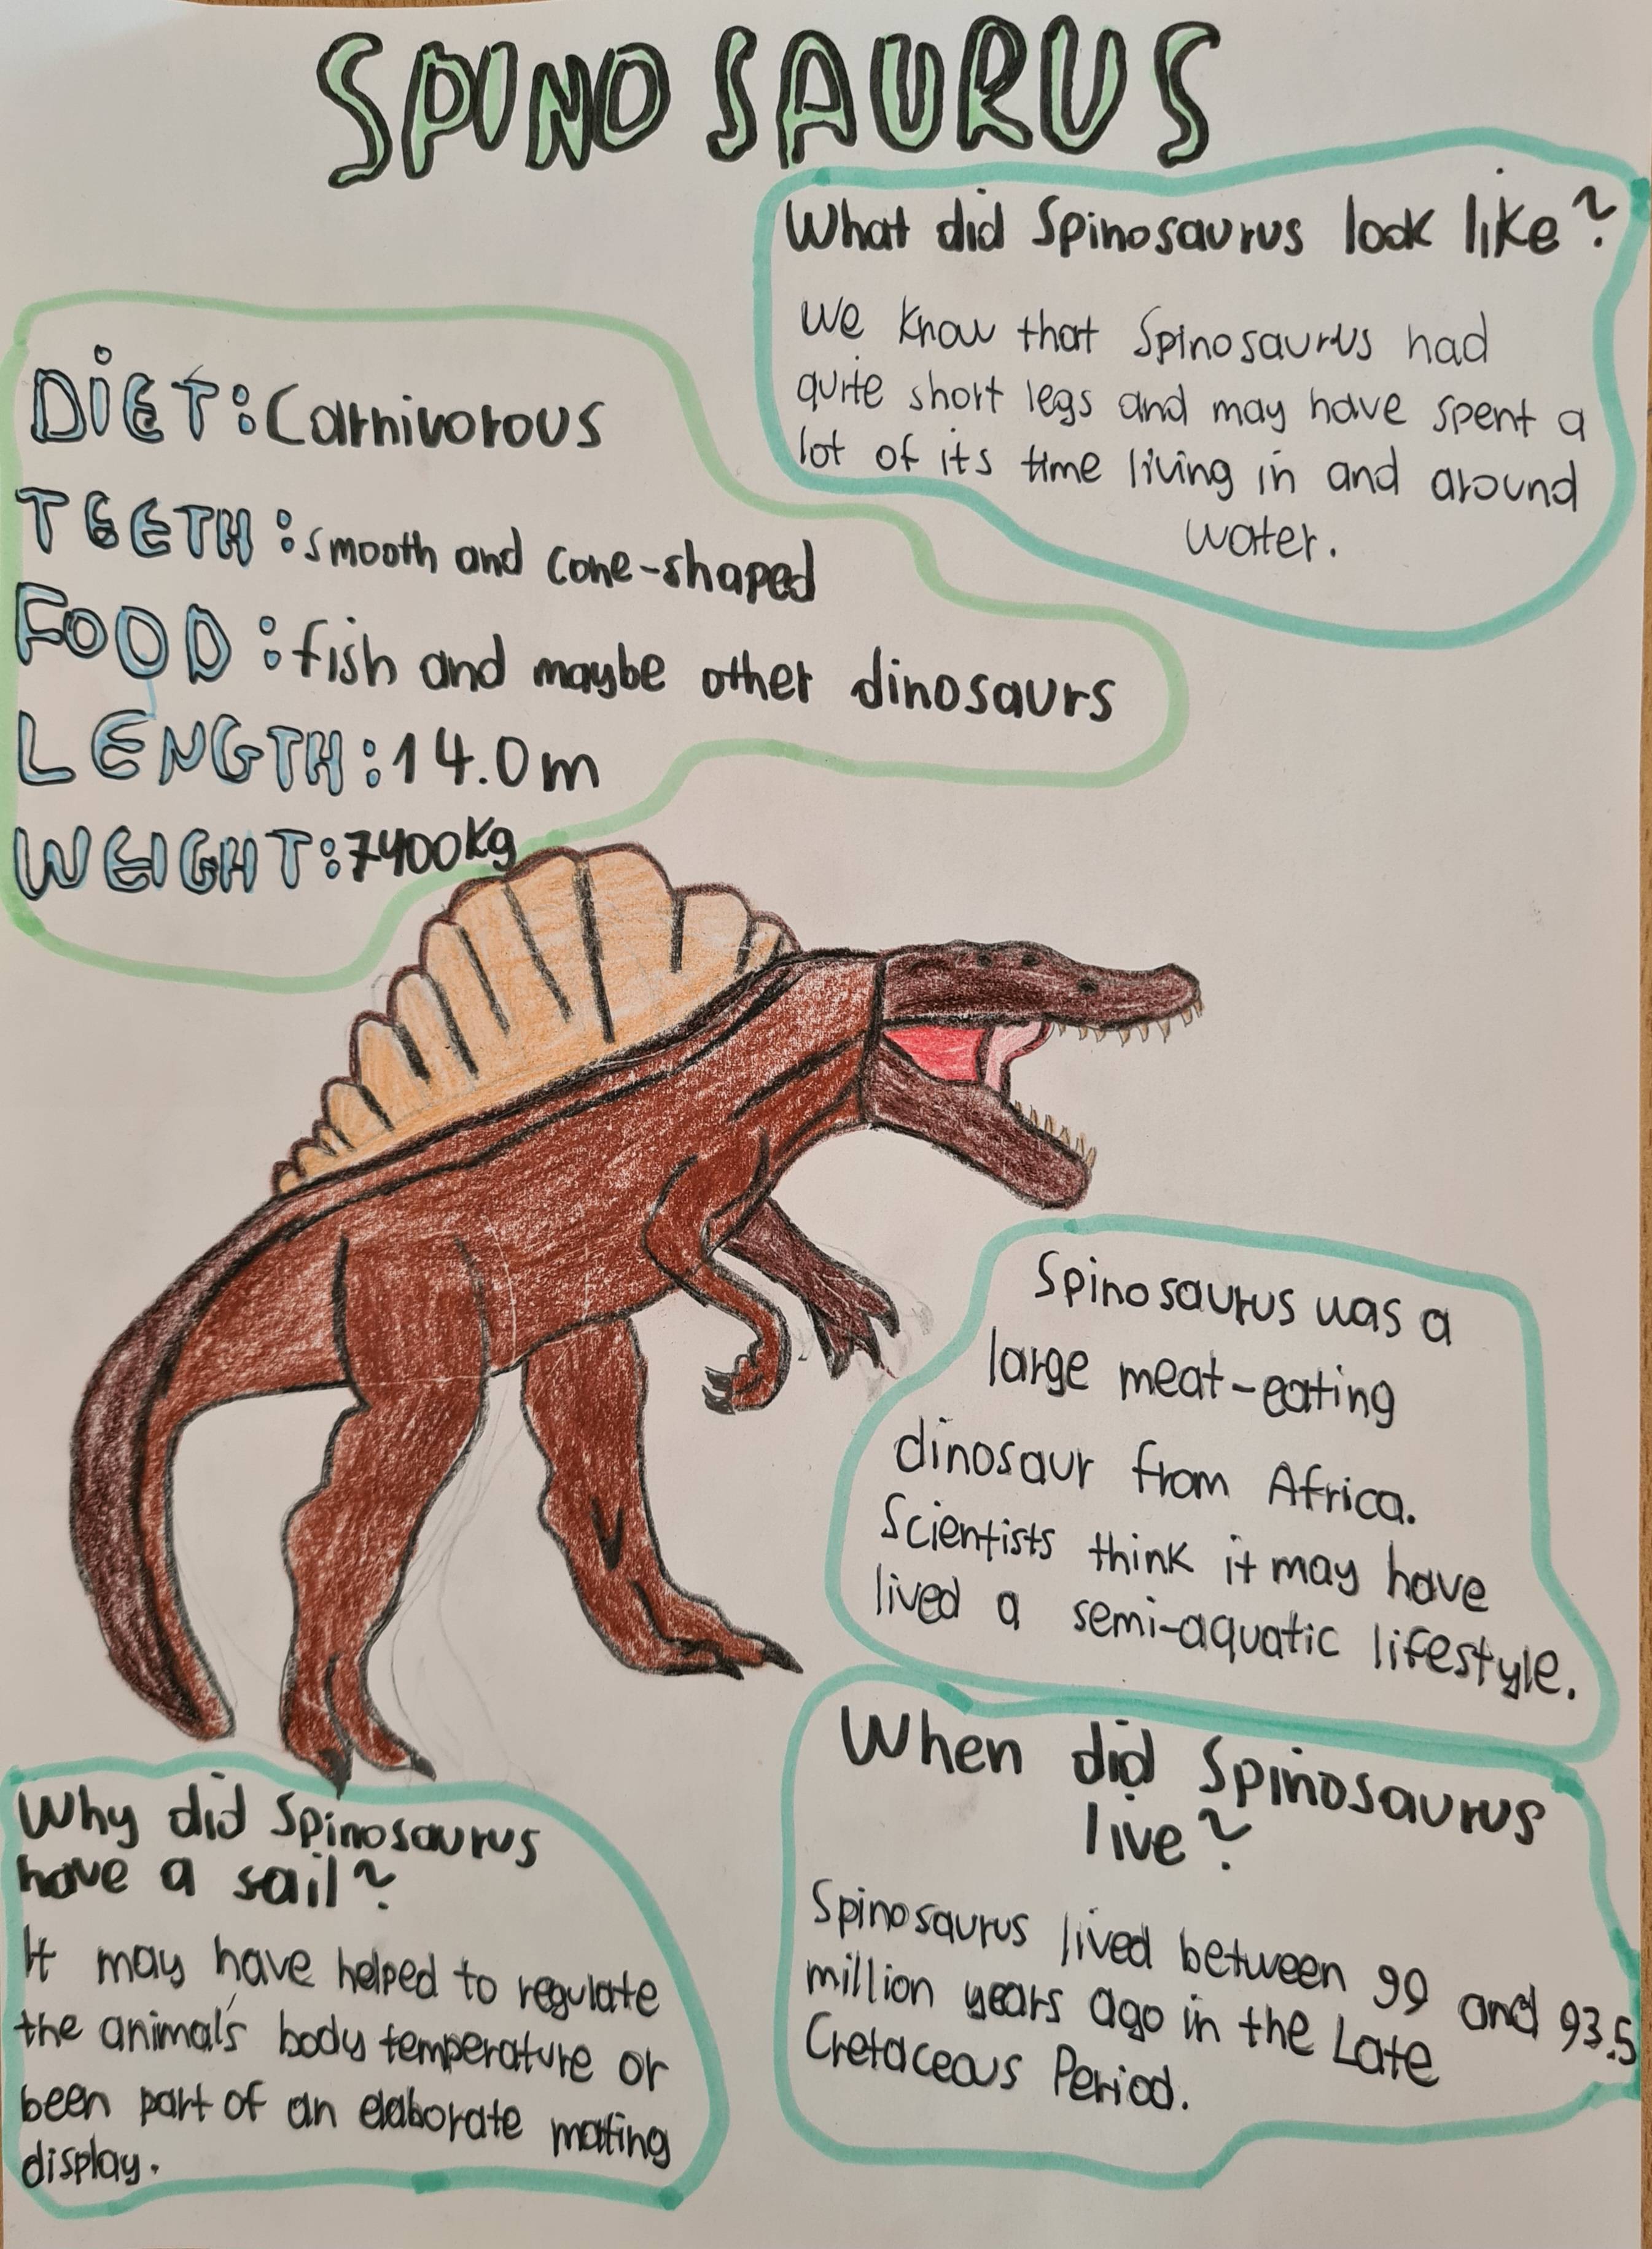 SPINOSAURUS
What did Spinosaurus look like?
We know that Spinosaurus had
quite short legs and may have spent a
lot of its time living in and around
water.
DIET: Carnivorous
TEETH: smooth and cone-shaped
FOOD: fish and maybe other dinosaurs
LENGTH: 14.0m
WEIGHT: 7400kg
Spinosaurus was a
large meat-eating
dinosaur from Africa.
Scientists think it may have
lived a semi-aquatic lifestyle.
Why did Spinosaurus
have a sail?
It may have helped to regulate
the animal's body temperature or
been part of an elaborate mating
display.
When did Spinosaurus
live?
Spinosaurus lived between 99 and 93.5
million years ago in the Late
Cretaceous Period.